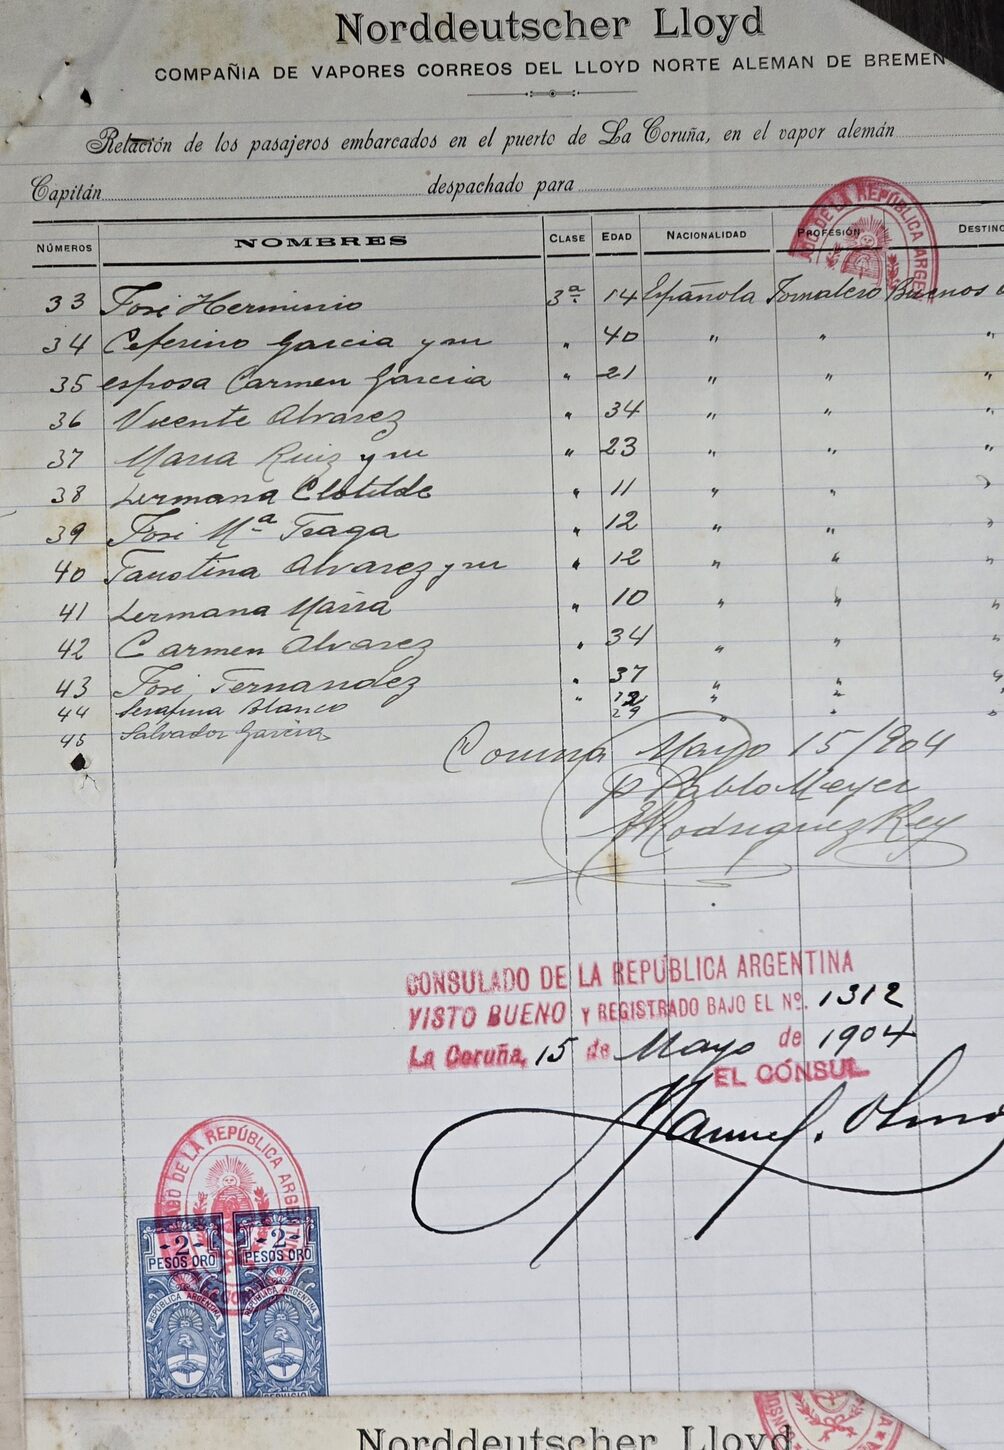 Norddeutscher Lloyd
COMPAÑIA DE VAPORES CORREOS DEL LLOYD NORTE ALEMAN DE BREMEN
Relación de los pasajeros embarcados en el puerto de La Coruña, en el vapor alemán
Capitán despachado para
NÚMEROS NOMBRES CLASE EDAD NACIONALIDAD PROFESIÓN DESTINO
33 José Herminio 3ª 14 Española Jornalero Buenos
34 Ceferino Garcia y su " 40 " " "
35 esposa Carmen Garcia " 21 " " "
36 Vicente Alvarez " 34 " " "
37 Maria Ruiz y su " 23 " " "
38 hermana Clotilde " 11 " " "
39 José Mª Fraga " 12 " " "
40 Faustina Alvarez y su " 12 " " "
41 hermana Maria " 10 " " "
42 Carmen Alvarez " 34 " " "
43 José Fernandez " 37 " " "
44 Serafina Blanco " " " "
45 Salvador Garcia 29 " "
Coruña Mayo 15/904
p Pablo Meyer
Rodriguez Rey
CONSULADO DE LA REPUBLICA ARGENTINA
VISTO BUENO Y REGISTRADO BAJO EL Nº. 1312
La Coruña, 15 de Mayo de 1904
EL CÓNSUL
Manuel
ADO DE LA REPÚBLICA ARGEN
ADO DE LA REPÚBLICA ARGENT
-2- -2-
PESOS ORO PESOS ORO
REPUBLICA ARGENTINA REPUBLICA ARGENTINA
Norddeutscher Lloyd